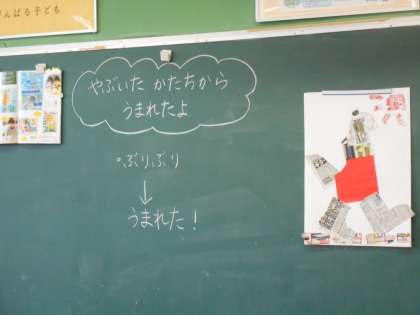 がんばる子ども
やぶいた かたちから
うまれたよ
・びりびり
↓
うまれた!